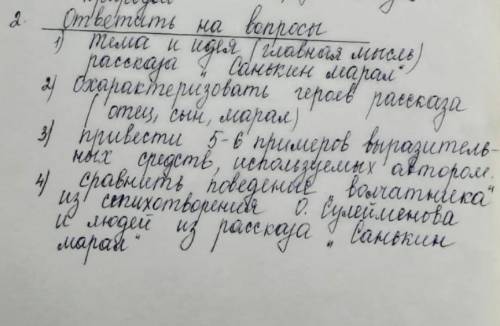 природой
2. Ответить на вопросы
1) тема и идея (главная мысль)
рассказа "Санькин марал"
2) Охарактеризовать героев рассказа
(отец, сын, марал)
3) привести 5-6 примеров выразитель-
ных средств, используемых автором.
4) сравнить поведение "волчатника"
из стихотворения О. Сулейменова
и людей из рассказа "Санькин
марал"